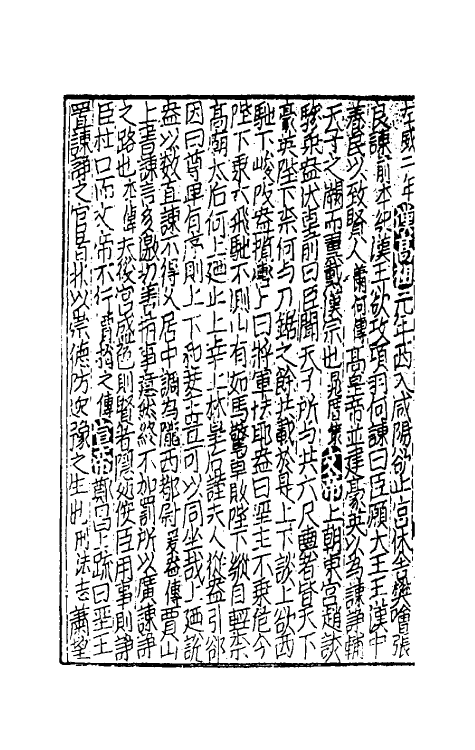 二年漢高祖元年西入咸陽欲止宮休舍樊噲張
良諫前本紀漢王欲攻項羽何諫曰臣願大王王漢中
養民以致賢人蕭何傳高皇帝並建豪英以為諫諍輔
天子之闕而翼戴漢宗也晁錯策文帝上朝東宮趙談
驂乘盎伏車前曰臣聞天子所與共六尺輿者皆天下
豪英陛下柰何与刀鋸之餘共載於是上下談上欲西
馳下峻阪盎攬轡上曰將軍怯耶盎曰聖主不乘危今
陛下乘六飛馳不測山有如馬驚車敗陛下縱自輕柰
高廟太后何上廼止上幸上林皇后謹夫人從盎引郤
因曰尊卑有序則上下和妾主豈可以同坐哉上廼說
盎以数直諫不得久居中調為隴西都尉爰盎傳賈山
上書諫言多激切善指事意然終不加罰所以廣諫諍
之路也本傳夫後宮盛色則賢者隱處佞臣用事則諍
臣杜口而文帝不行賈捐之傳宣帝鄭昌上疏曰聖王
置諫諍之官者非以崇德防逸豫之生也刑法志蕭望